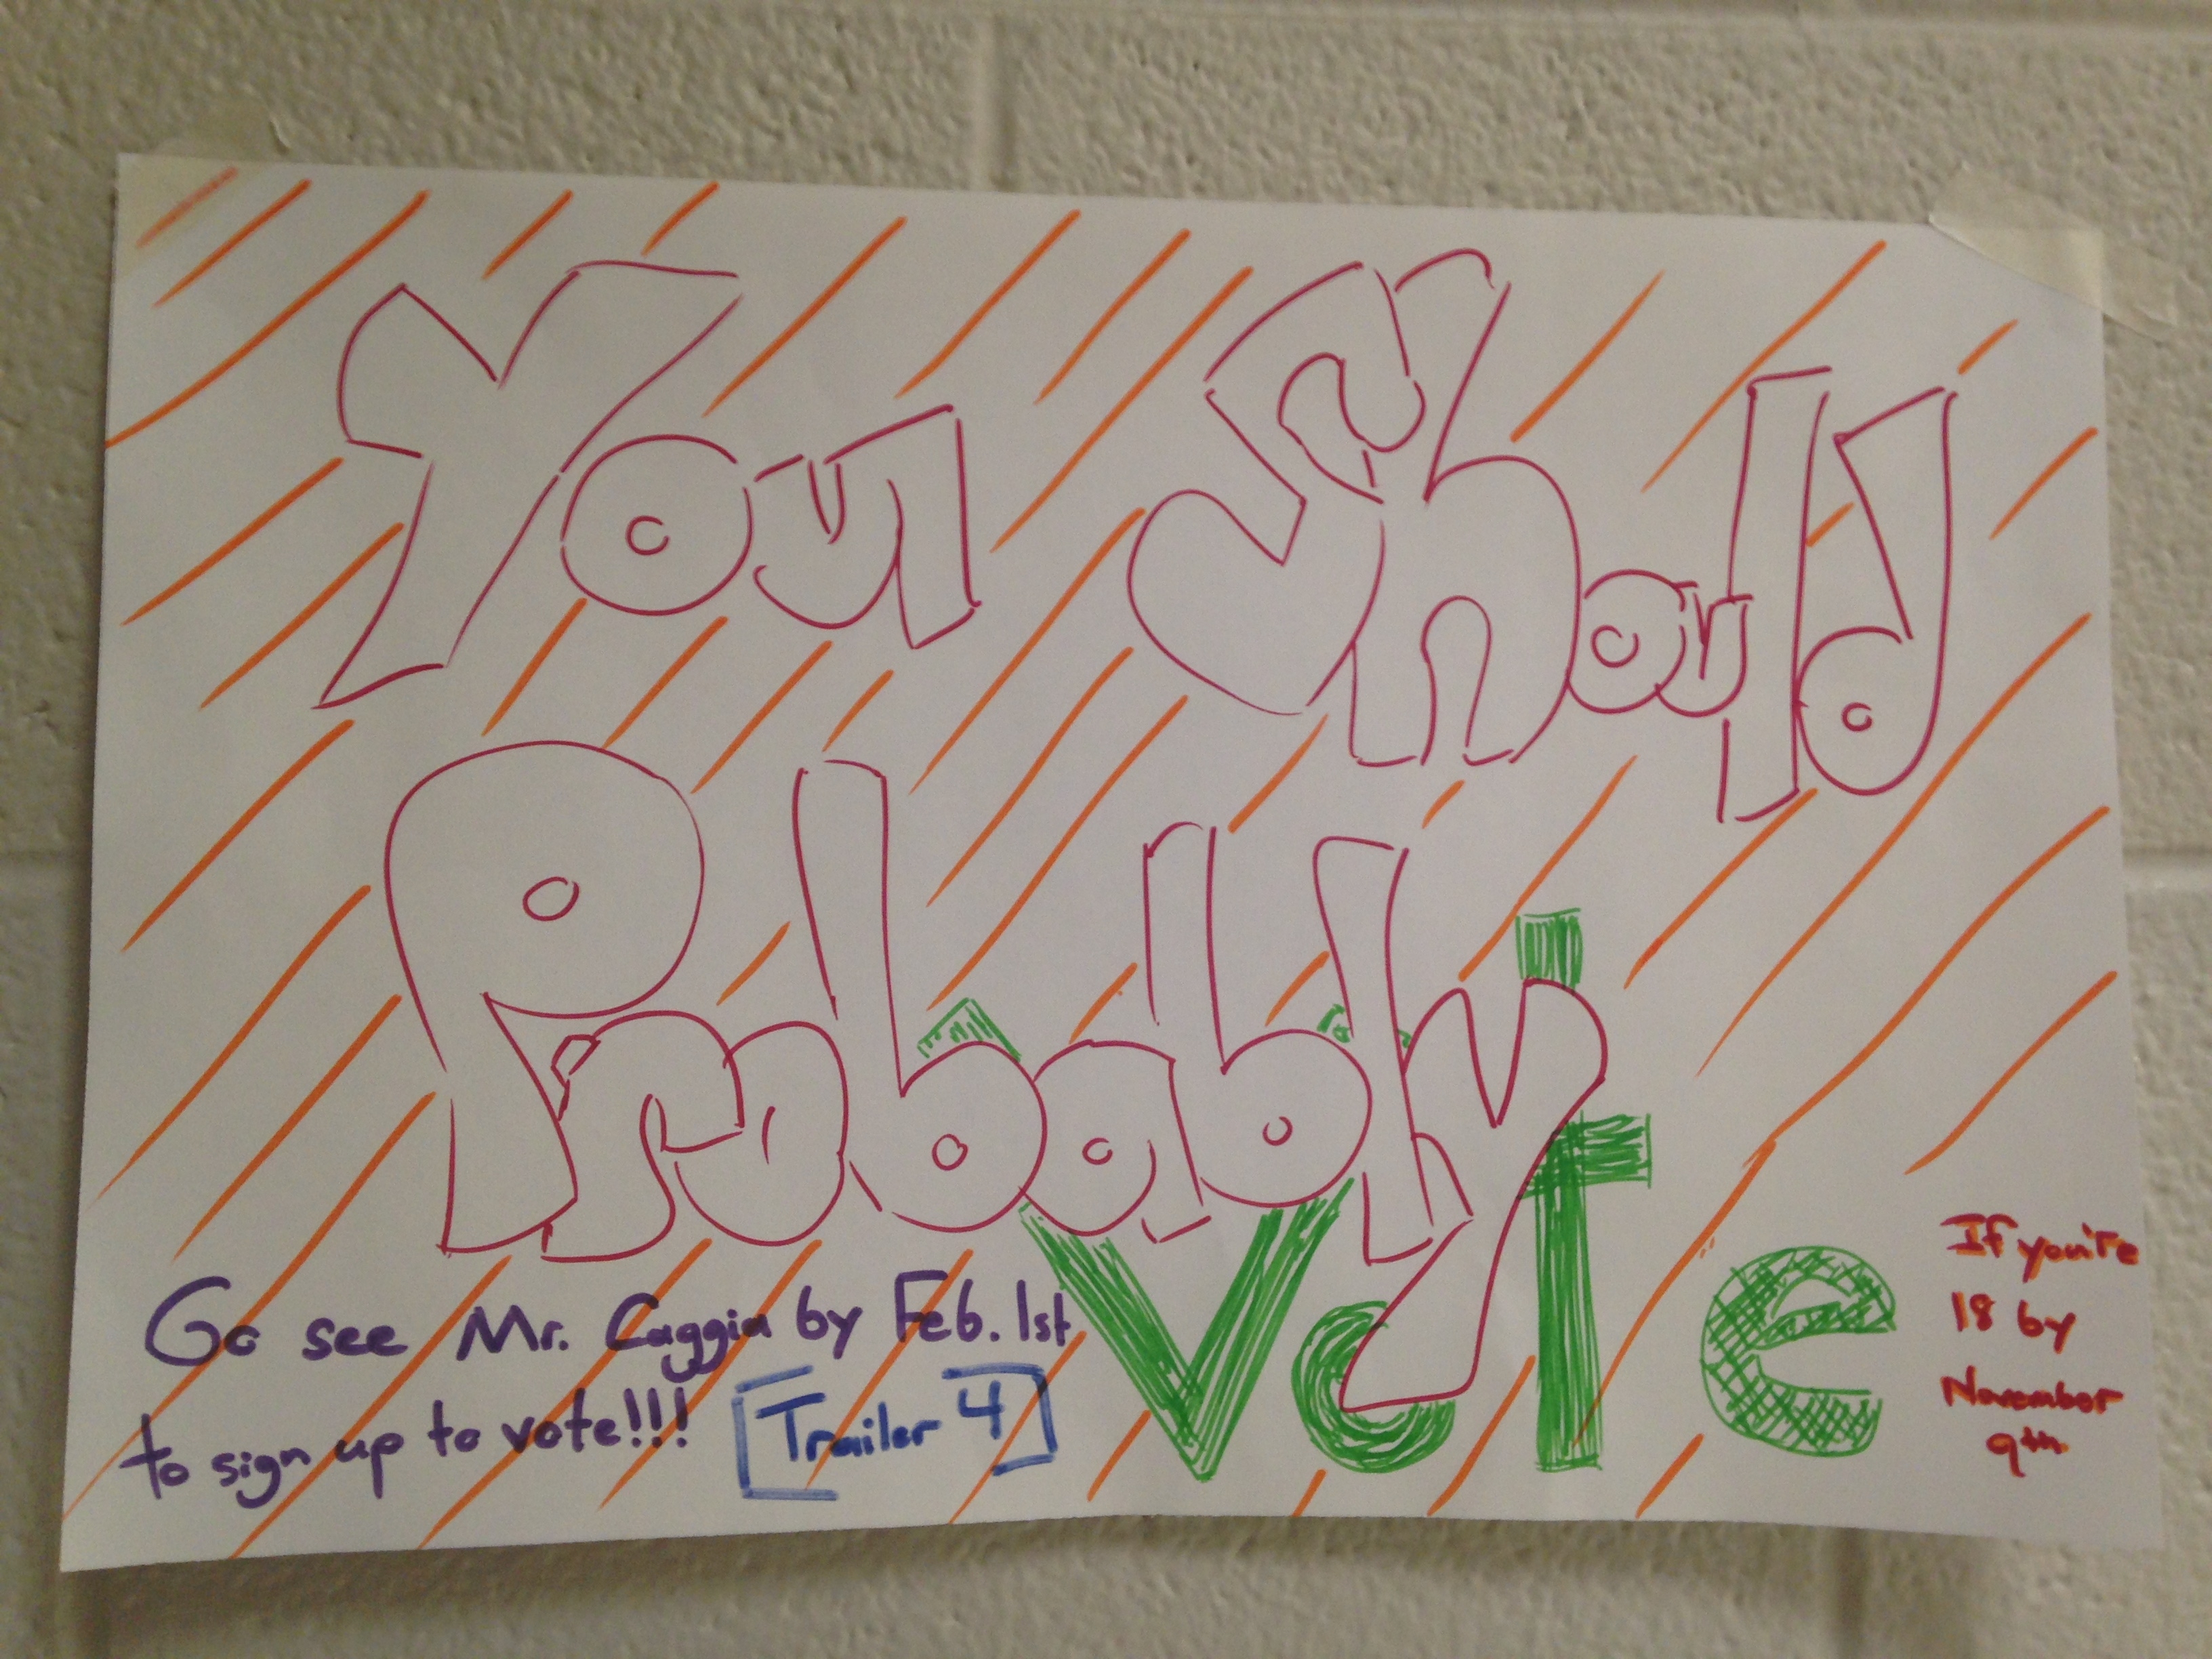 You Should
Probably
Vote
Go see Mr. Caggia by Feb. 1st
to sign up to vote!!! [Trailer 4]
If you're
18 by
November
9th